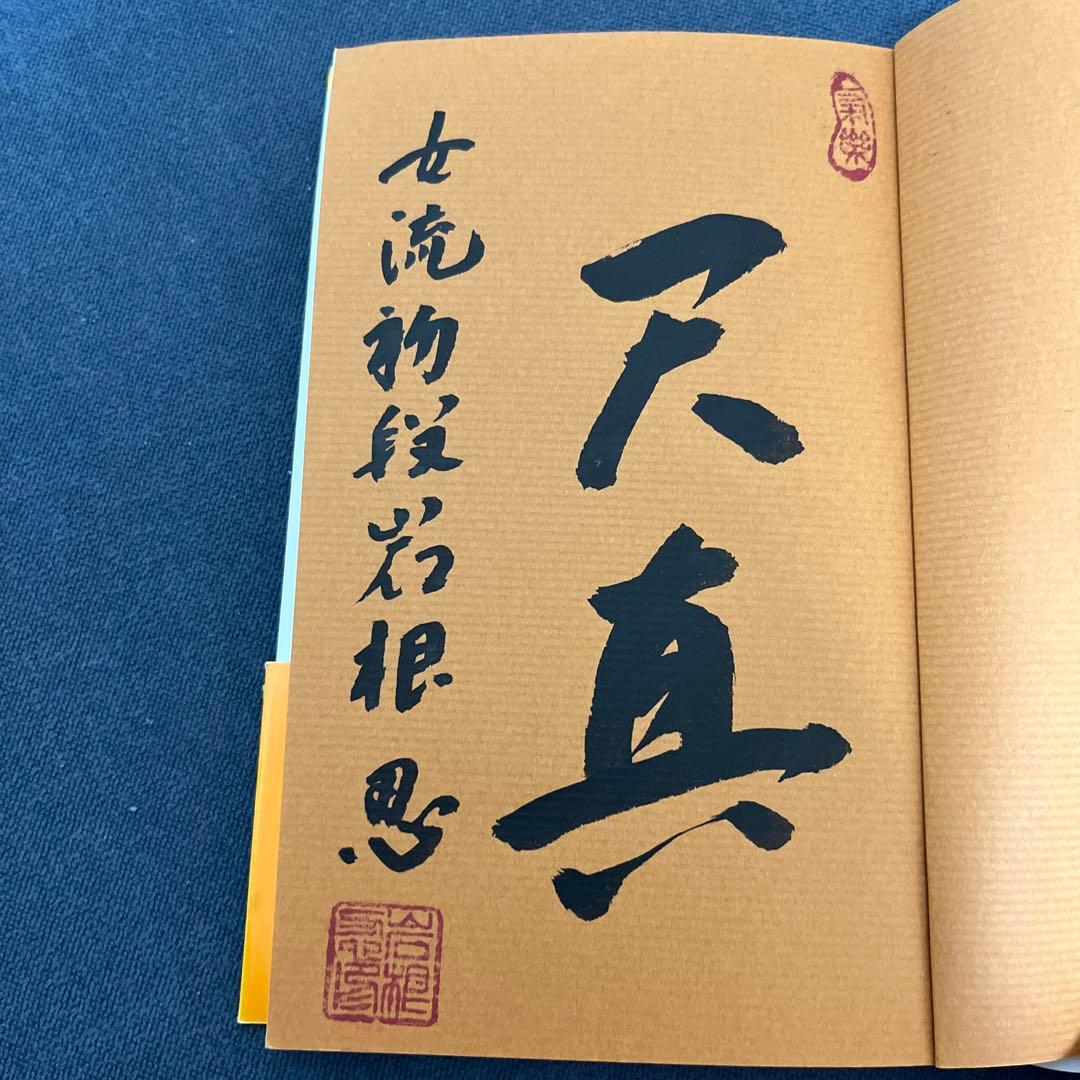 天真
女流初段岩根 忍
岩根
忍印